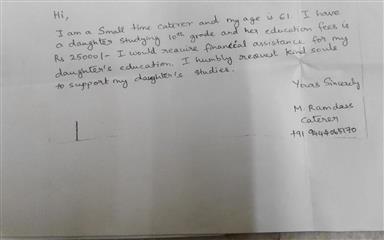 Hi,
I am a Small time caterer and my age is 61. I have
a daughter studying 10th grade and her education fees is
Rs 25000/- I would require financial assistance for my
daughter's education. I humbly request kind souls
to support my daughter's studies.
Yours Sincerely
M. Ramdass
Caterer
+91 9444065170